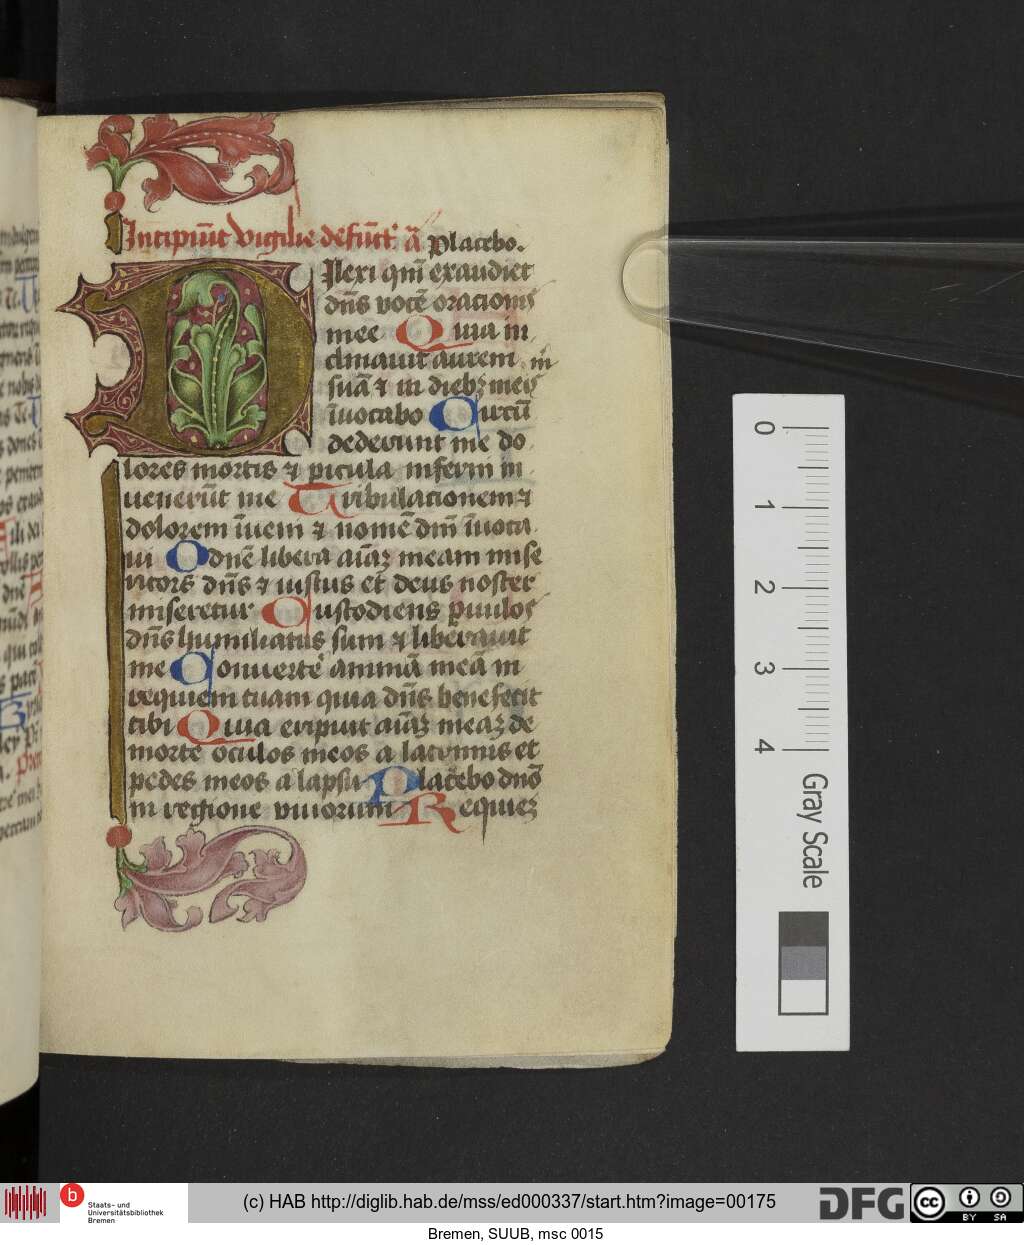 Incipiu͂t vigilie defu͂ct' a͂ placebo.
Dilexi qm̄ exaudiet
dn̄s vocē oracionis
mee Quia in
clinauit aurem m
suā ⁊ in diebꝫ meis
īuocabo Circū
dederunt me do
lores mortis ⁊ picula inferni in
uenerūt me Tribulationem ⁊
dolorem īueni ⁊ nomē dn̄i īuoca
ui O dnē libera aīaꝫ meam mise
ricors dn̄s ⁊ iustus et deus noster
miseretur Custodiens puulos
dn̄s humiliatus sum ⁊ liberauit
me Conuerte animā meā in
requiem tuam quia dn̄s benefecit
tibi Quia eripuit aīaꝫ meaꝫ de
morte oculos meos a lacrimis et
pedes meos a lapsu Placebo dn̄o
in regione viuorum Requieꝫ
0
1
2
3
4
Gray Scale
b
Staats- und
Universitätsbibliothek
Bremen
(c) HAB http://diglib.hab.de/mss/ed000337/start.htm?image=00175
DFG
cc
BY SA
Bremen, SUUB, msc 0015